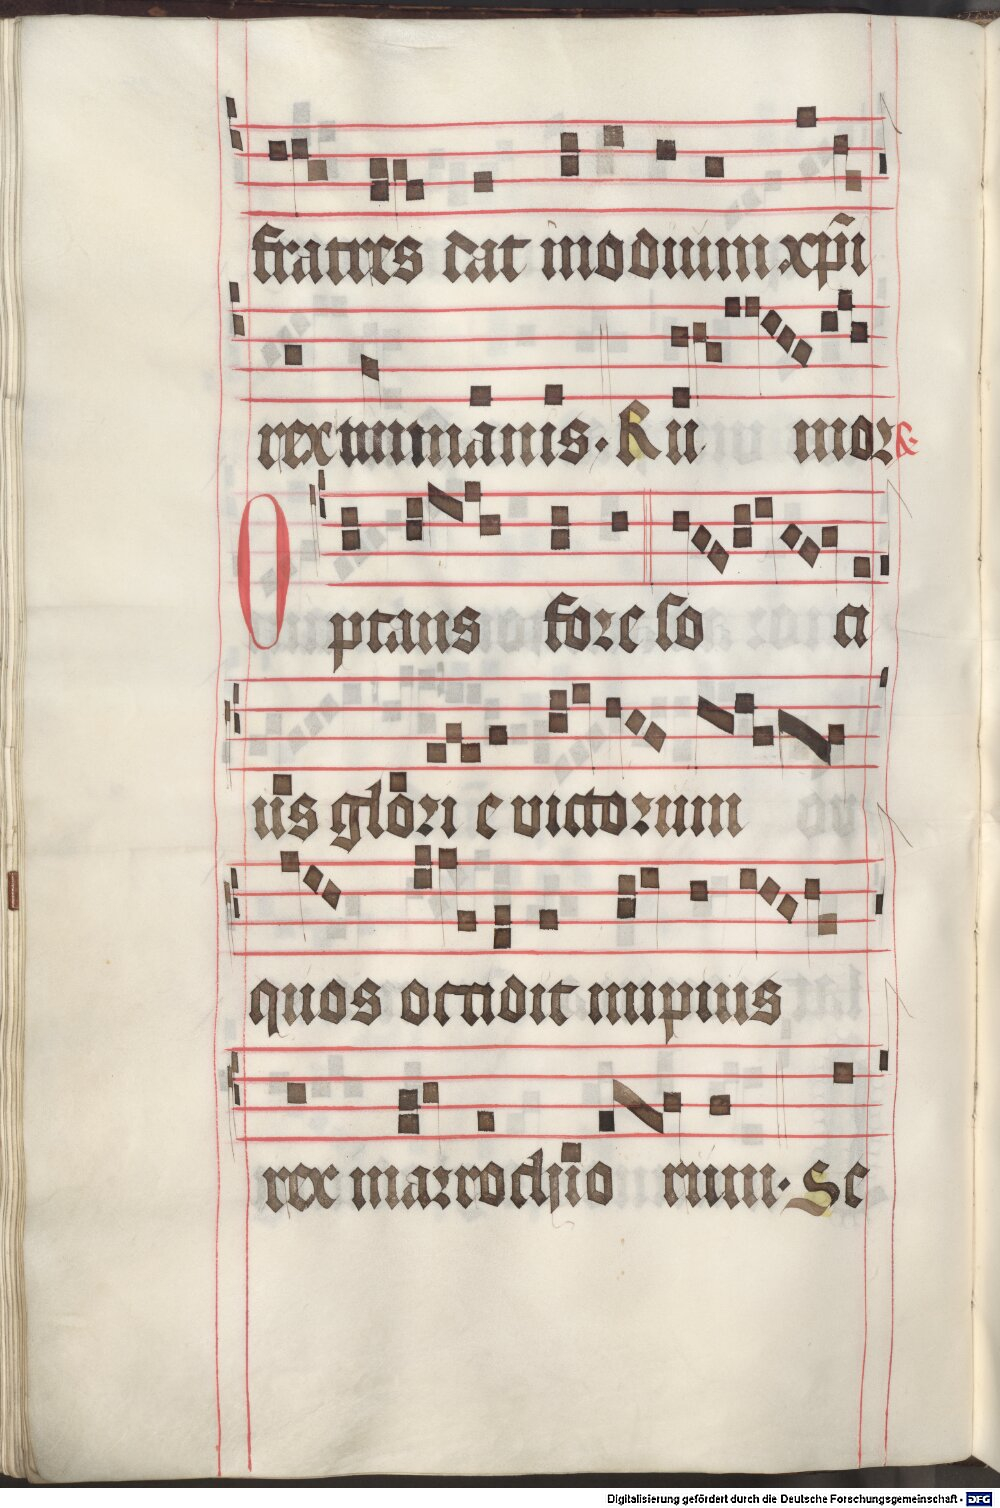 fratres dat modium xp̄i
rex inmanis. R ii mor R.
Optans fore so ci
us glori e victorum
quos occidit impius
rex marrochio rum. Se
Digitalisierung gefördert durch die Deutsche Forschungsgemeinschaft - DFG